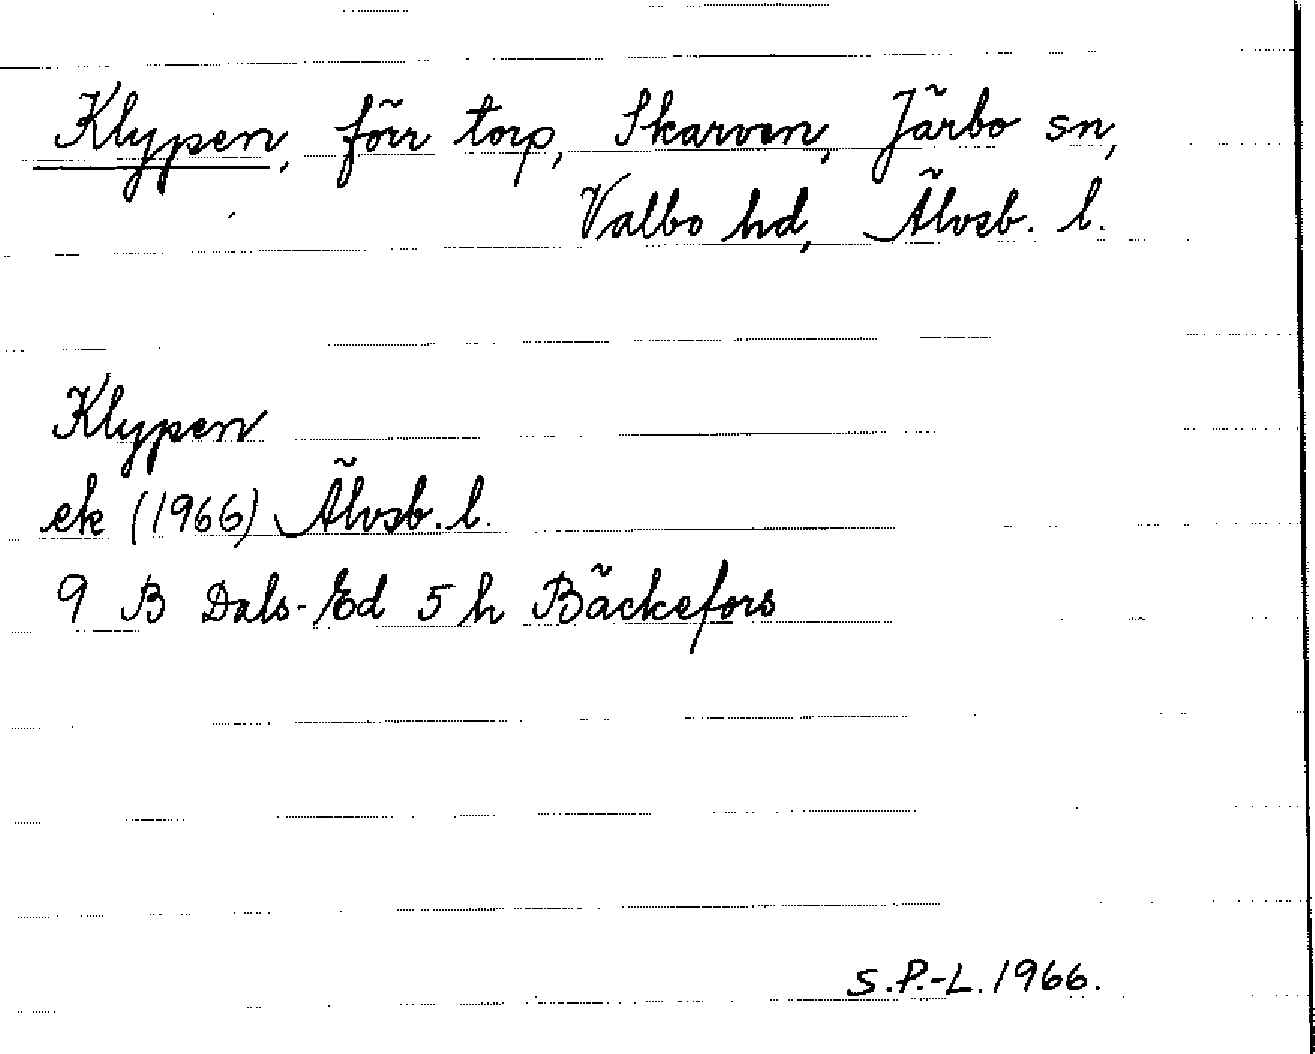 Klypen, förr torp, Skarven, Järbo sn,
Valbo hd, Älvsb. l.
Klypen
ek (1966) Älvsb. l.
9 B Dals-Ed 5 h Bäckefors
S.P.-L. 1966.